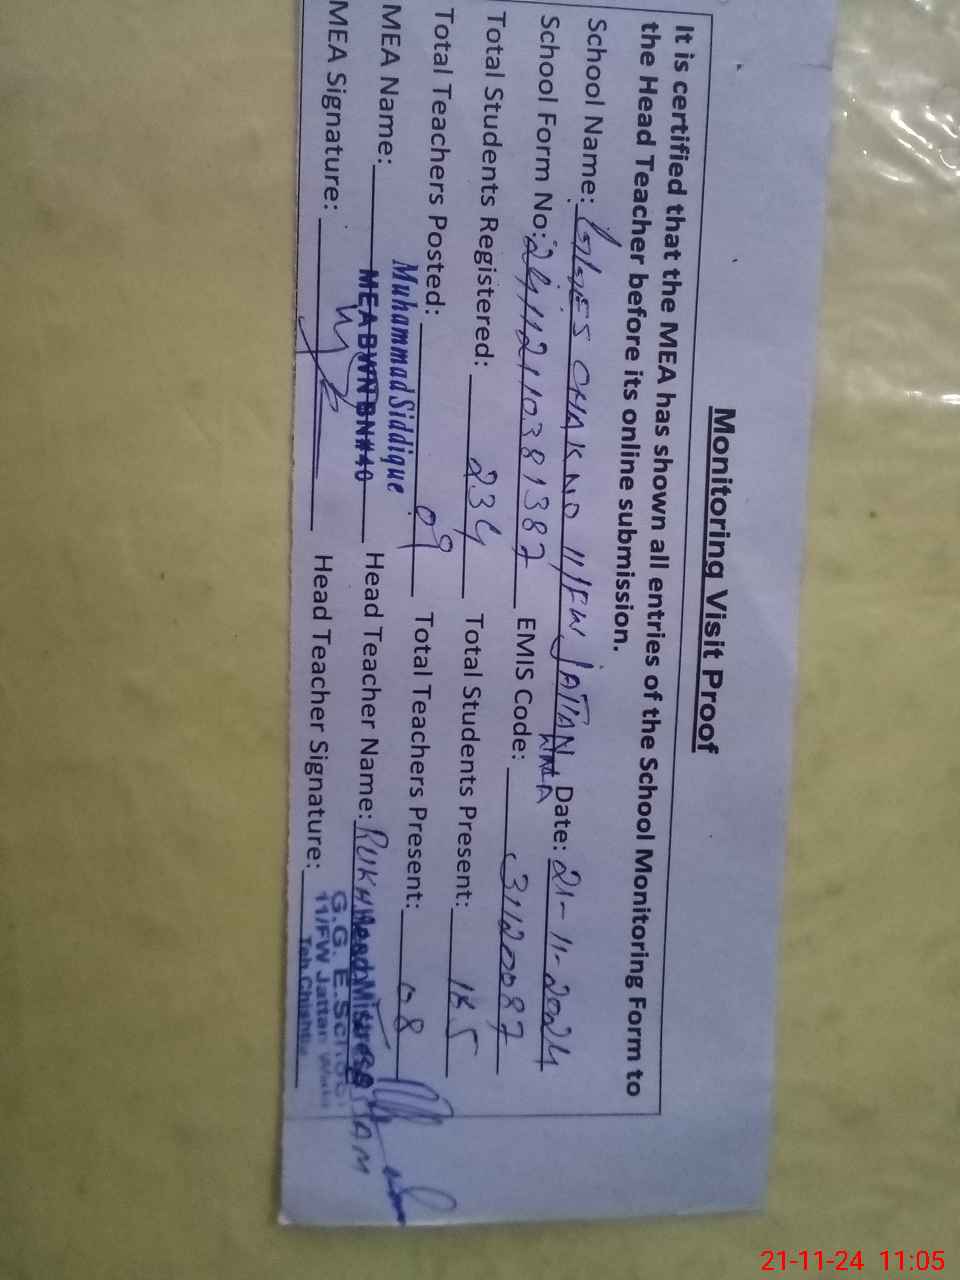 Monitoring Visit Proof
It is certified that the MEA has shown all entries of the School Monitoring Form to
the Head Teacher before its online submission.
School Name: GGES CHAK NO 11/FW JATTAN WALA Date: 21-11-2024
School Form No: 24112110381387 EMIS Code: 31120087
Total Students Registered: 234 Total Students Present: 185
Total Teachers Posted: 09 Total Teachers Present: 08
Muhammad Siddique
MEA Name: MEA BWN BN#40 Head Teacher Name: Head Mistress
MEA Signature: Head Teacher Signature:
G.G.E.School
11/FW Jattan Wala
Teh.Chishtian
21-11-24 11:05